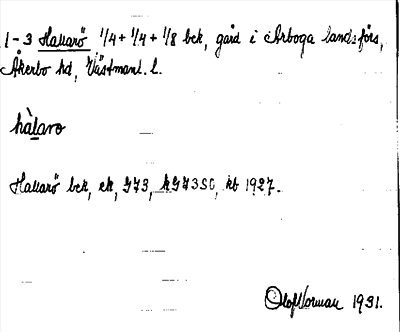 1-3 Hallarö 1/4 + 1/4 + 1/8 bek, gård i Arboga landsförs,
Åkerbo hd, Västmanl. l.
hàlaro
Hallarö bek, ek, GJ3, kGJ3SO, kb 1927.
Olof Norman 1931.